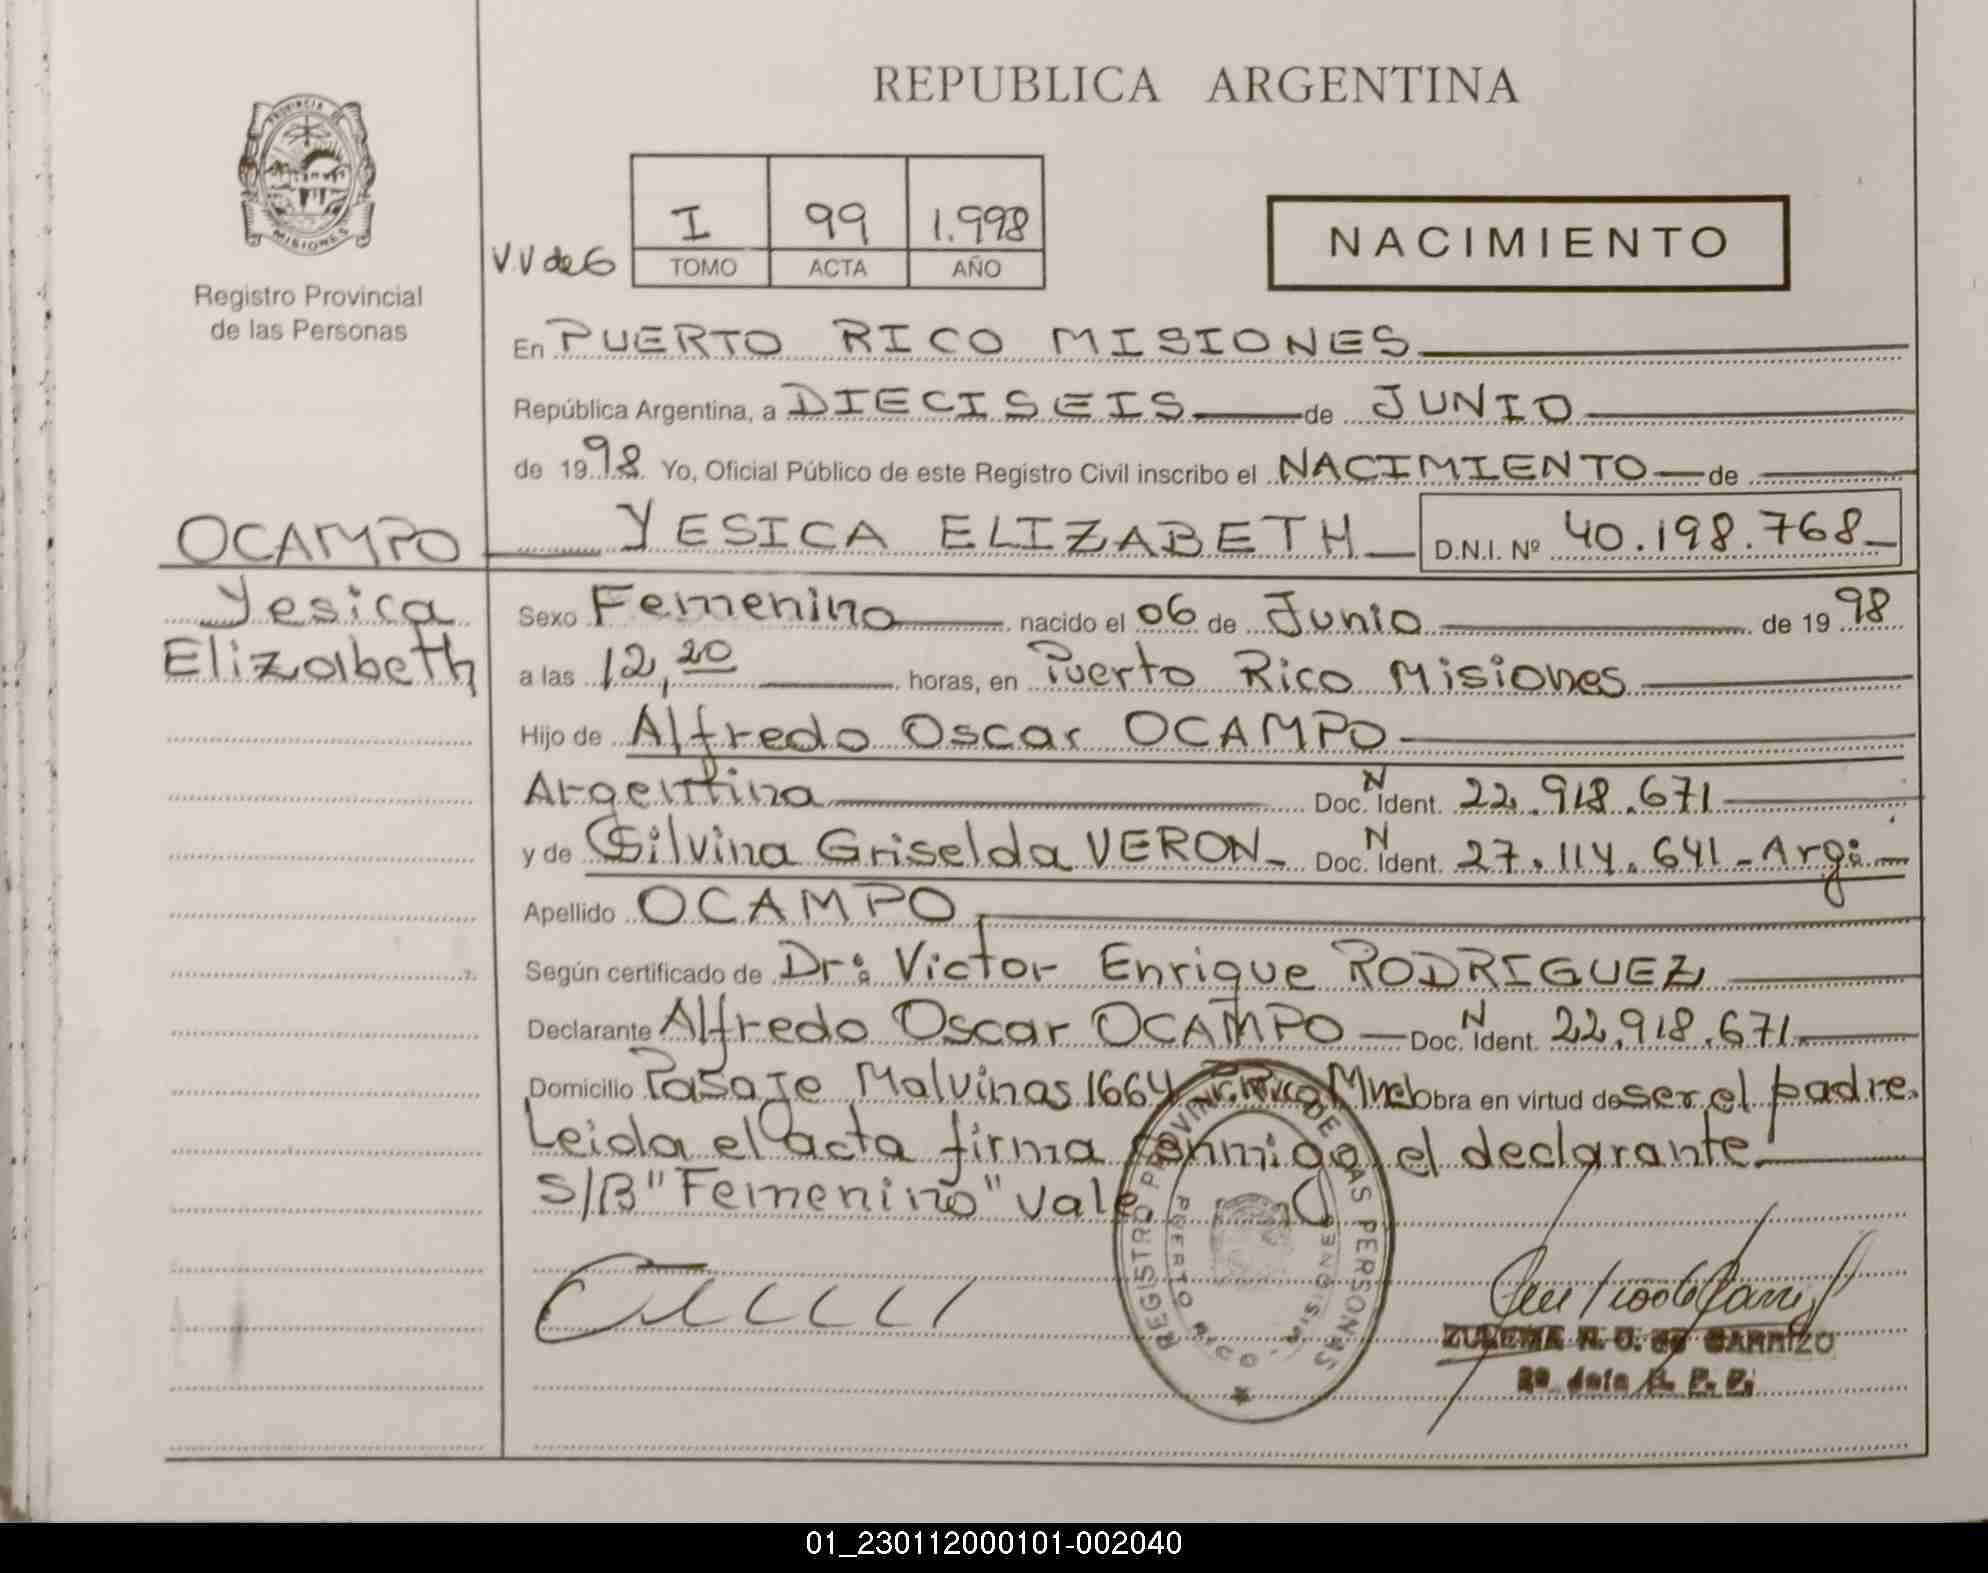 REPUBLICA ARGENTINA
PROVINCIA DE
MISIONES
Registro Provincial
de las Personas
V.V de G
I 99 1.998
TOMO ACTA AÑO
NACIMIENTO
En PUERTO RICO MISIONES
República Argentina, a DIECISEIS de JUNIO
de 1998 Yo, Oficial Público de este Registro Civil inscribo el NACIMIENTO de
OCAMPO YESICA ELIZABETH D.N.I. Nº 40.198.768
Yesica
Elizabeth
Sexo Femenino nacido el 06 de Junio de 1998
a las 12,20 horas, en Puerto Rico Misiones
Hijo de Alfredo Oscar OCAMPO
Argentina Doc. N Ident. 22.918.671
y de Silvina Griselda VERON Doc. N Ident. 27.114.641 - Arg:
Apellido OCAMPO
Según certificado de Dr: Victor Enrique RODRIGUEZ
Declarante Alfredo Oscar OCAMPO Doc. N Ident. 22.918.671
Domicilio Pasaje Malvinas 1664 P. Rico Mnes obra en virtud de ser el padre.
Leida el acta firma conmigo el declarante
S/B "Femenino" vale.
REGISTRO PROVINCIAL DE LAS PERSONAS
PUERTO RICO - MISIONES
ZULEMA N. O. de CARRIZO
01_230112000101-002040